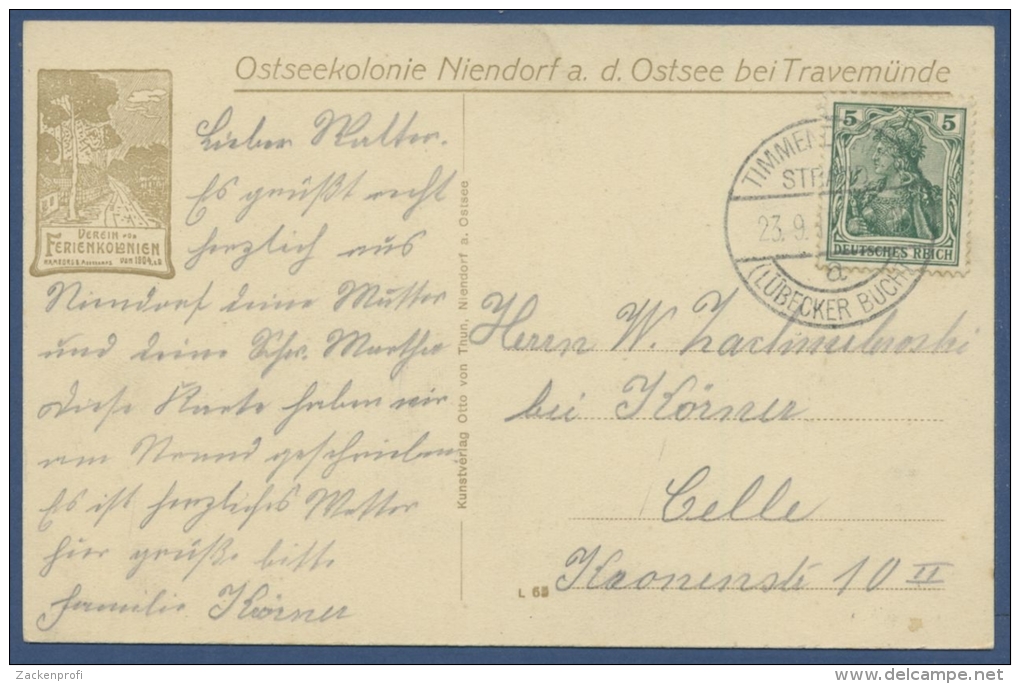 Ostseekolonie Niendorf a. d. Ostsee bei Travemünde
VEREIN FÜR
FERIENKOLONIEN
VON 1904. E.V.
Lieber Walter.
Es grüßt recht
herzlich aus
Niendorf deine Mutter
und deine Schw. Martha
diese Karte haben wir
am Strand geschrieben
Es ist herzliches Wetter
hier grüße bitte
Familie Körner
Kunstverlag Otto von Thun, Niendorf a. Ostsee
5 5
DEUTSCHES REICH
TIMMEN
STRAN
23.9.
a
(LÜBECKER BUCH
Herrn W.
bei Körner
Celle
Kronenstr 10 II
L 63
Zackenprofi
www.delcampe.net